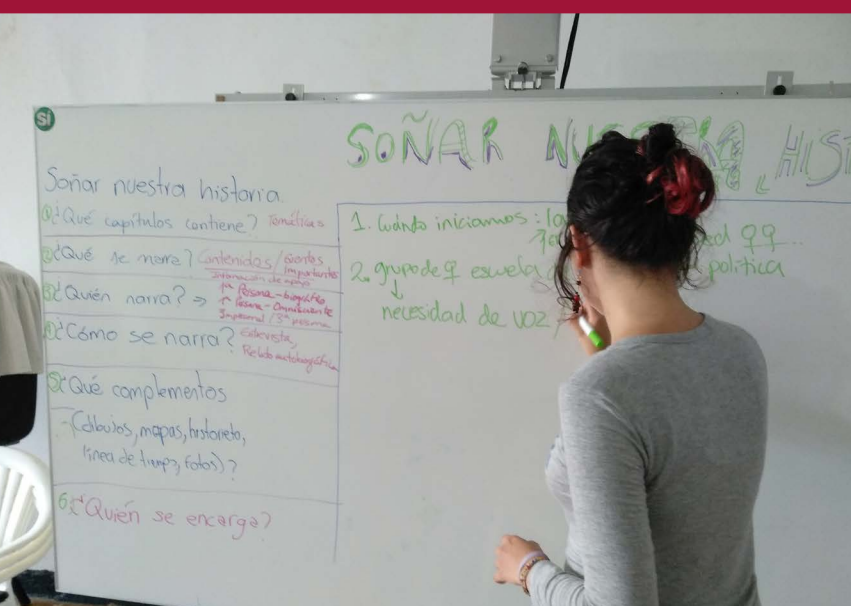 SÍ
Soñar nuestra historia
① ¿Qué capítulos contiene? Temáticas
② ¿Qué se narra? Contenidos / aportes
importantes
Información de apoyo
③ ¿Quién narra? →
1ª Persona - biográfico
Persona - Omnisciente
Impersonal / 3ª persona
④ ¿Cómo se narra?
Relato autobiográfico
⑤ ¿Qué complementos
(dibujos, mapas, historieta,
línea de tiempo, fotos)?
6. ¿Quién se encarga?
SOÑAR
HIST
1. Cuándo iniciamos:
♀♀...
2. grupo de ♀ escuela política
↓
necesidad de voz